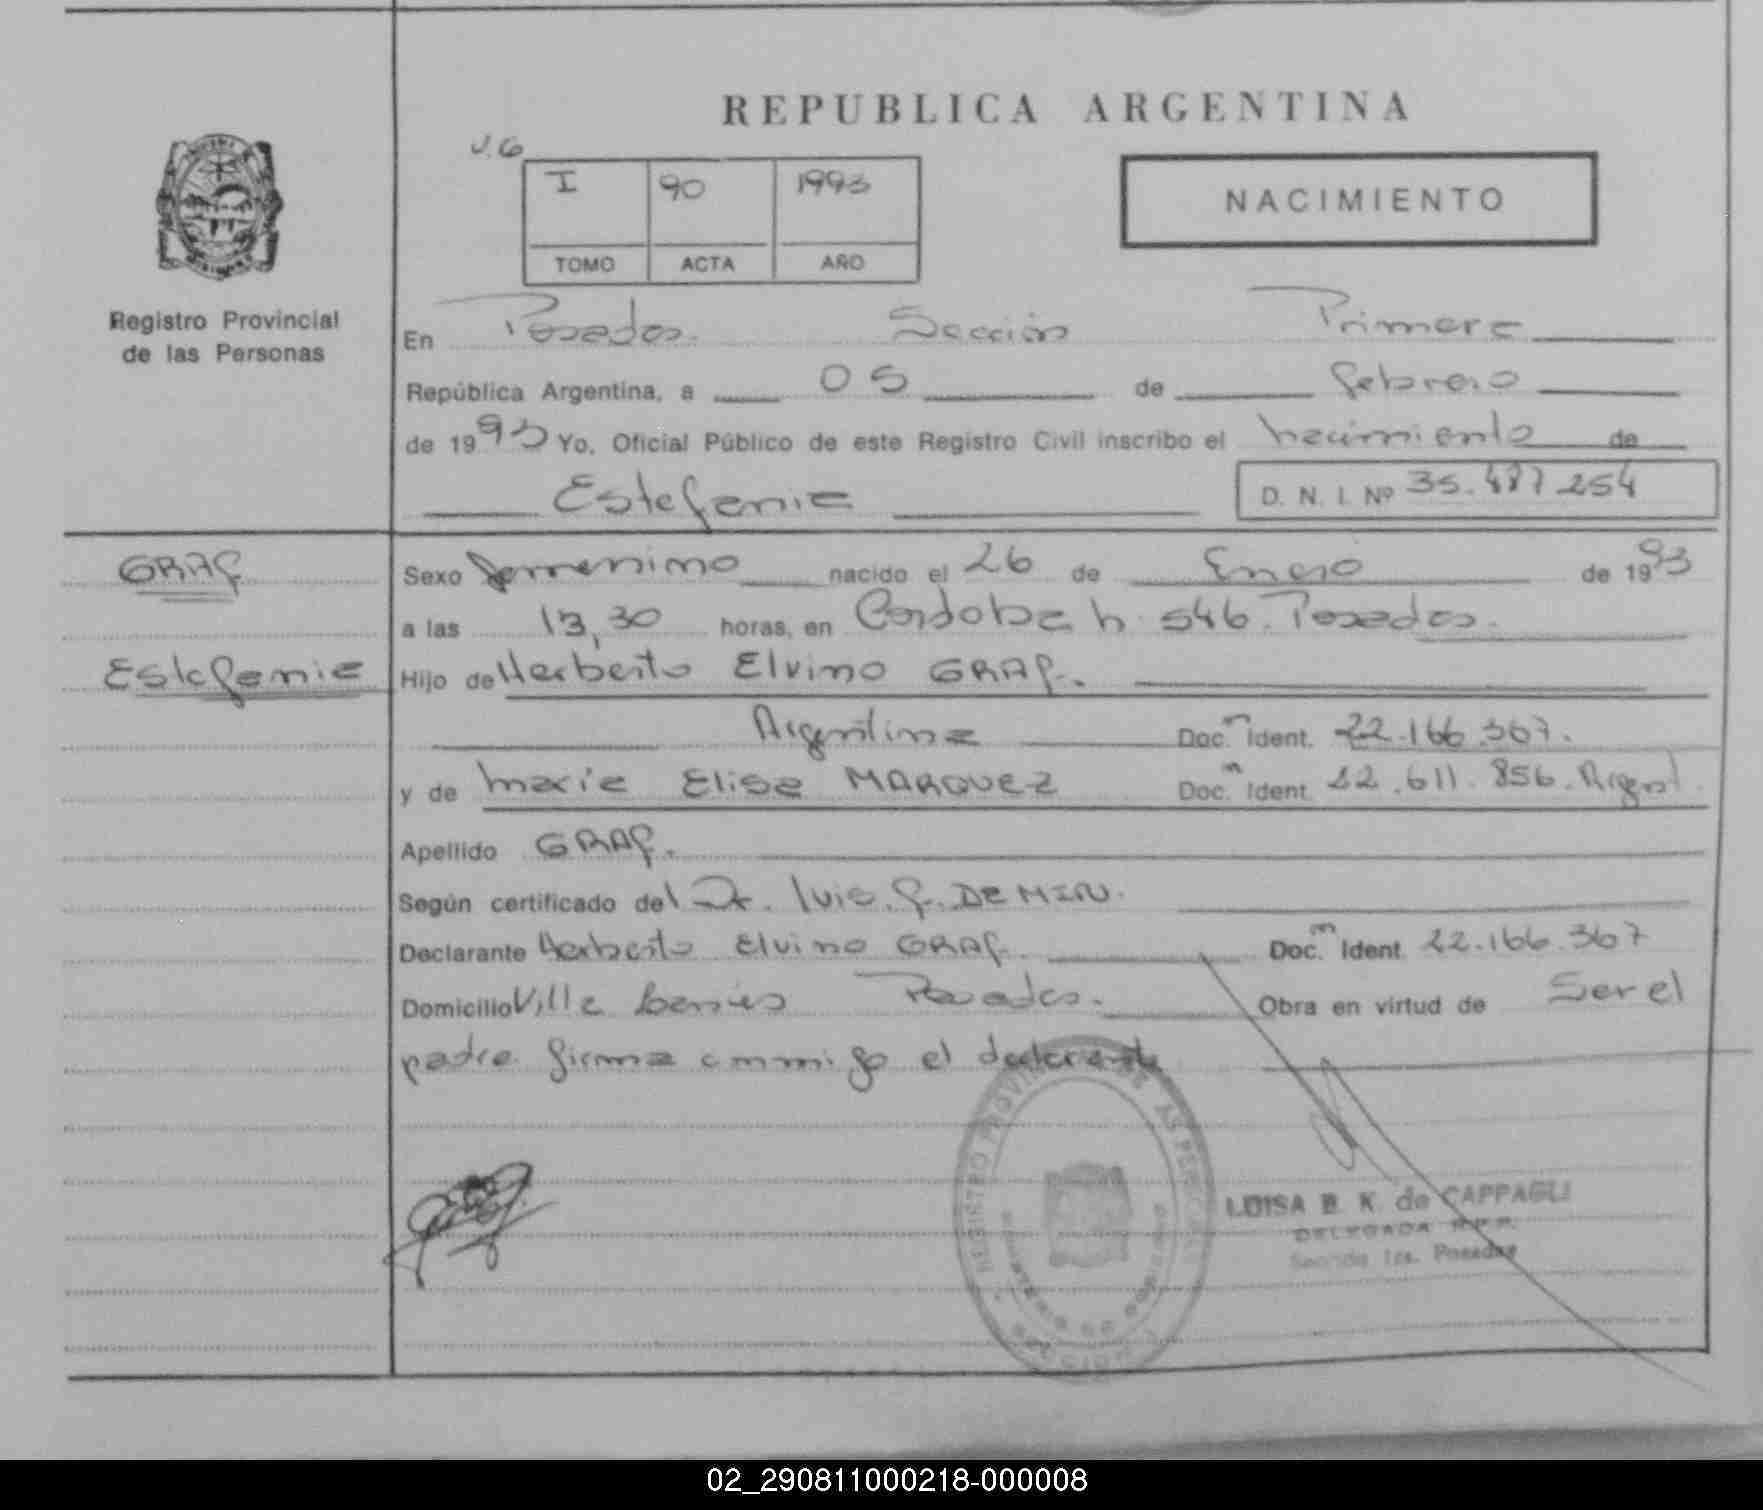 REPUBLICA ARGENTINA
V.G
I 90 1993
TOMO ACTA AÑO
NACIMIENTO
Registro Provincial
de las Personas
En Posadas. Sección Primera
República Argentina, a 05 de febrero
de 1993 Yo, Oficial Público de este Registro Civil inscribo el nacimiento de
Estefania D. N. I. Nº 35.487.254
GRAF
Estefania
Sexo femenino nacido el 26 de Enero de 1993
a las 13,30 horas, en Cordoba n 546. Posadas.
Hijo de Herberto Elvino GRAF.
Argentina Doc. m Ident. 22.166.367.
y de Maria Elisa MARQUEZ Doc. m Ident. 22.611.856. Argent.
Apellido GRAF.
Según certificado del Dr. Luis. F. DE MIN.
Declarante Herberto Elvino GRAF. Doc. m Ident. 22.166.367
Domicilio Villa Posadas. Obra en virtud de Ser el
padre firma conmigo el declarante
REGISTRO PROVINCIAL DE LAS PERSONAS
LUISA B. K. de CAPPAGLI
DELEGADA R.P.P.
Sección 1ra. Posadas
02_290811000218-000008